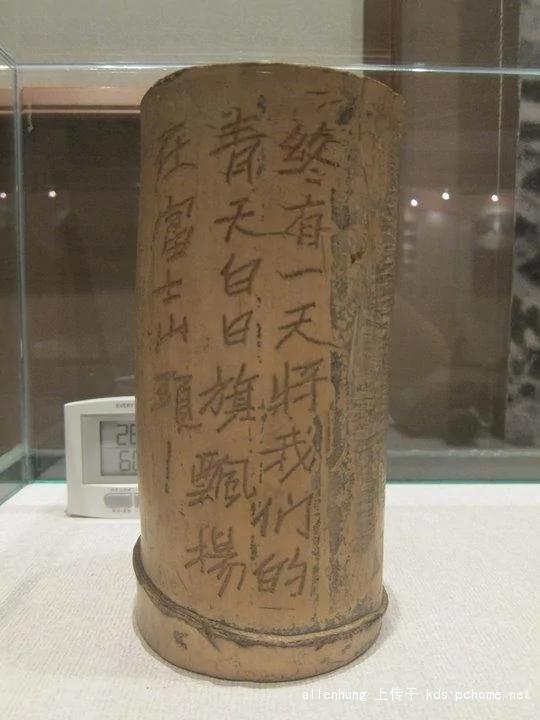 終有一天將我们的
青天白日旗飄揚
在富士山頭
EVERY
26
60
allenhung 上传于 kds.pchome.net